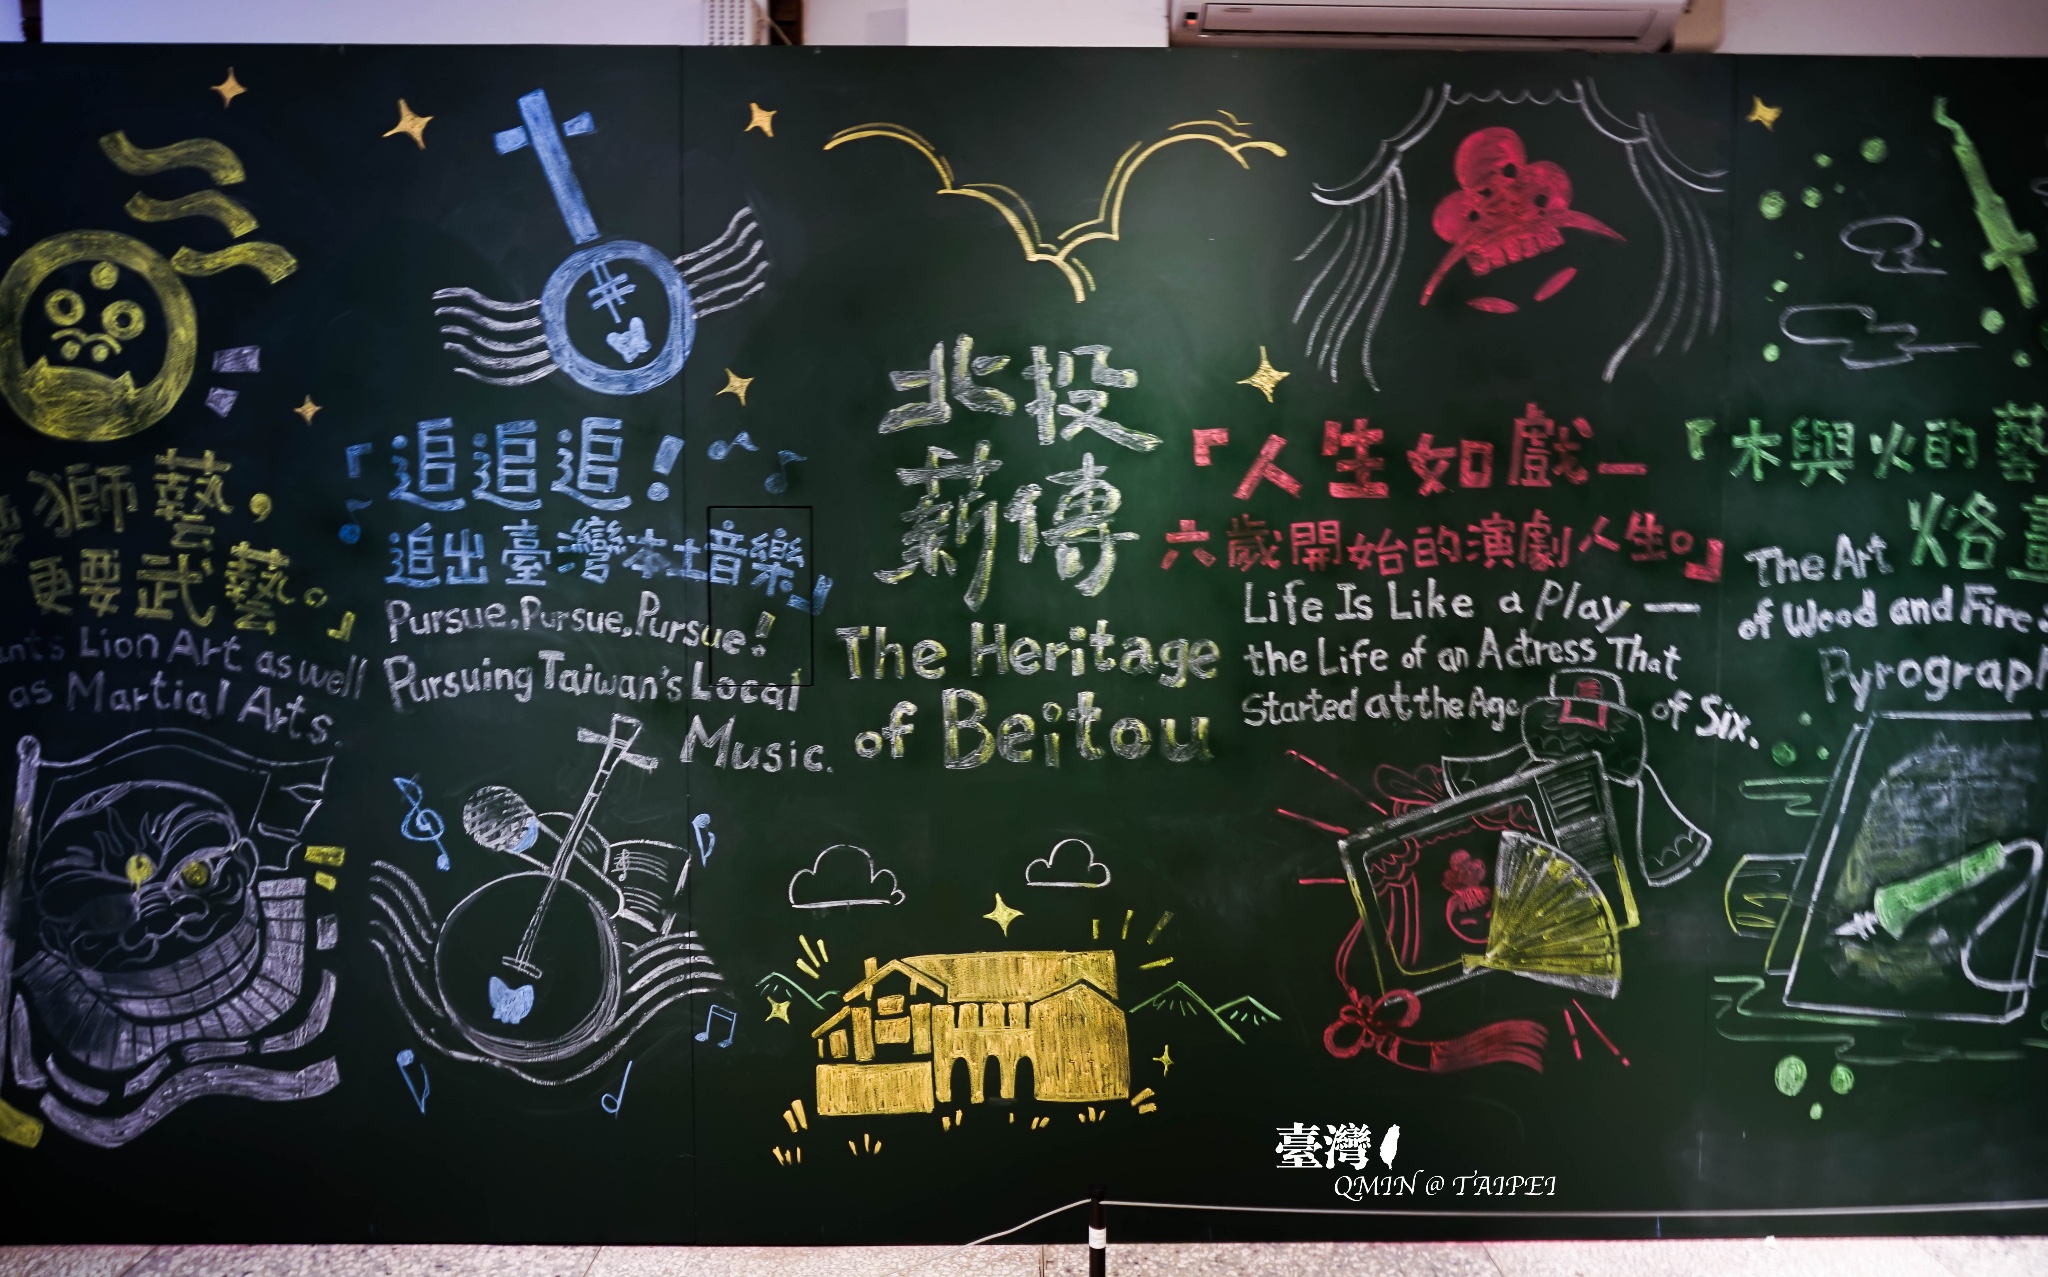 獅藝，
更要武藝。』
Lion Art as well
as Martial Arts.
『追追追！
追出臺灣本土音樂』
Pursue, Pursue, Pursue!
Pursuing Taiwan's Local
Music.
北投
薪傳
The Heritage
of Beitou
『人生如戲—
六歲開始的演劇人生。』
Life Is Like a Play —
the Life of an Actress That
Started at the Age of Six.
『木與火的藝
烙畫
The Art
of Wood and Fire
臺灣
QMIN @ TAIPEI